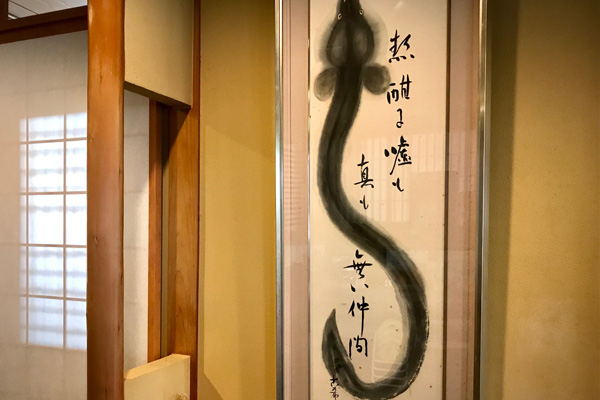 熱酣に嘘も
真も
無い仲間